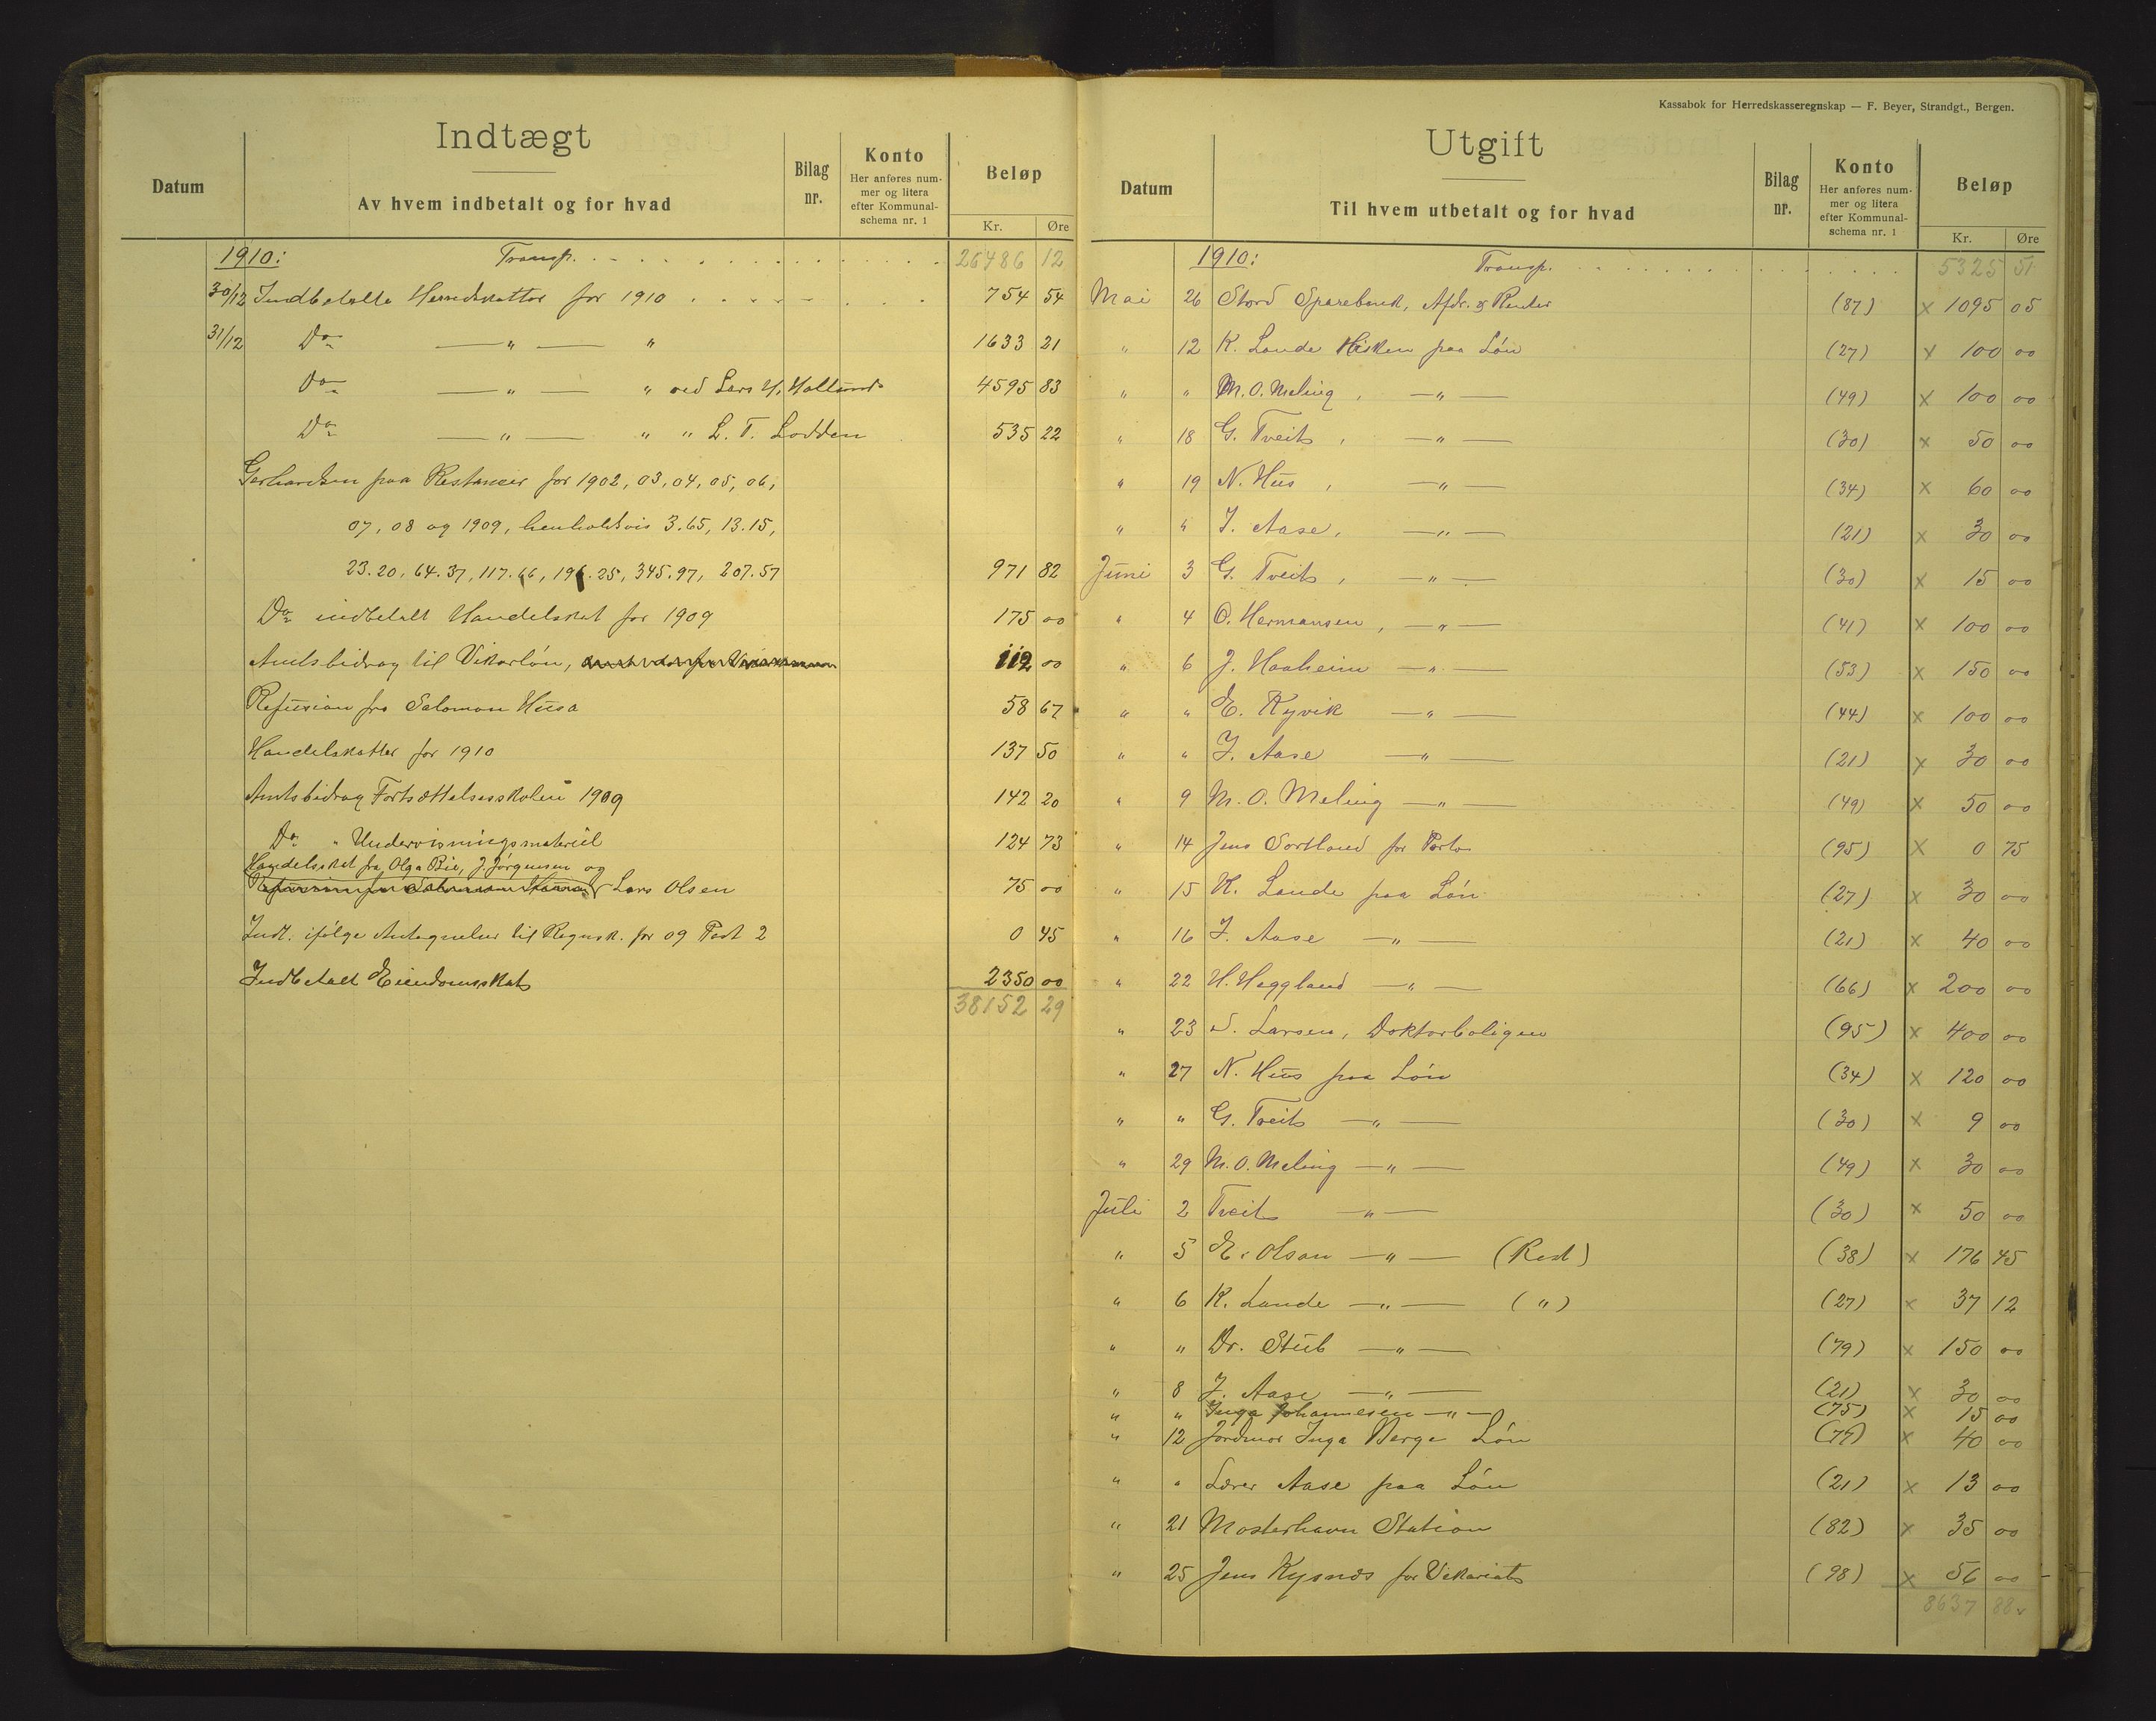 Indtægt
Datum
Av hvem indbetalt og for hvad
Bilag nr.
Konto
Her anføres nummer og litera efter Kommunalschema nr. 1
Beløp
Kr. Øre
1910: Transp. 26486 12
30/12 Indbetalte Herredskatter for 1910 754 54
31/12 Do — " — " 1633 21
Do — " — " ved Lars H. Hollund 4595 83
Do — " — " " L. T. Lodden 535 22
Gerhardsen paa Restancer for 1902, 03, 04, 05, 06,
07, 08 og 1909, henholdsvis 3.65, 13.15,
23.20, 64.37, 117.66, 196.25, 345.97, 207.57 971 82
Do indbetalt Handelskat for 1909 175 00
Amtsbidrag til Vikarløn, 112 00
Refusion fra Salomon Husa 58 67
Handelskatter for 1910 137 50
Amtsbidrag Fortsættelsesskolen 1909 142 20
Do " Undervisningsmateriel 124 73
Handelsskat fra Olga Bie, J. Jørgensen og
Refusion fra Salomon Husa Lars Olsen 75 00
Indt. ifølge Antegnelser til Regnsk. for 09 Post 2 0 45
Indbetalt Eiendomsskat 2350 00
38152 29
Kassabok for Herredskasseregnskap — F. Beyer, Strandgt., Bergen.
Utgift
Datum
Til hvem utbetalt og for hvad
Bilag nr.
Konto
Her anføres nummer og litera efter Kommunalschema nr. 1
Beløp
Kr. Øre
1910: Transp. 5325 51
Mai 26 Stord Sparebank, Afdr. & Renter (87) x 1095 05
" 12 K. Lande paa Løn (27) x 100 00
" " M. O. Meling, — " — (49) x 100 00
" 18 G. Tveit, — " — (30) x 50 00
" 19 N. Hus, — " — (34) x 60 00
" " J. Aase, — " — (21) x 30 00
Juni 3 G. Tveit, — " — (30) x 15 00
" 4 O. Hermansen, — " — (41) x 100 00
" 6 J. Haaheim — " — (53) x 150 00
" " E. Kyvik — " — (44) x 100 00
" " J. Aase — " — (21) x 30 00
" 9 M. O. Meling — " — (49) x 50 00
" 14 Jens Sortland for Porto (95) x 0 75
" 15 K. Lande paa Løn (27) x 30 00
" 16 J. Aase — " — (21) x 40 00
" 22 H. Heggland — " — (66) x 200 00
" 23 S. Larsen, Doktorboligen (95) x 400 00
" 27 N. Hus paa Løn (34) x 120 00
" " G. Tveit — " — (30) x 9 00
" 29 M. O. Meling — " — (49) x 30 00
Juli 2 Tveit — " — (30) x 50 00
" 5 E. Olsen — " — (Rest) (38) x 176 45
" 6 K. Lande — " — ( " ) (27) x 37 12
" " Dr. Stub — " — (79) x 150 00
" 8 J. Aase — " — (21) x 30 00
" " Inga Johannesen — " — (75) x 15 00
" 12 Jordmor Inga Berge Løn (79) x 40 00
" " Lærer Aase paa Løn (21) x 13 00
" 21 Mosterhavn Station (82) x 35 00
" 25 Jens Kysnes for Vikariat (98) x 56 00
8637 88